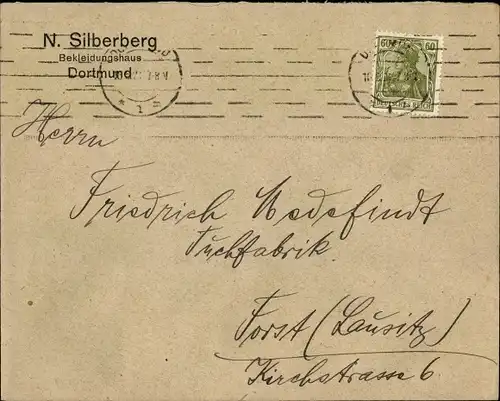 N. Silberberg
Bekleidungshaus
Dortmund
60 60
DEUTSCHES REICH
Herrn
Friedrich Medefindt
Tuchfabrik
Forst (Lausitz)
Kirchstrasse 6